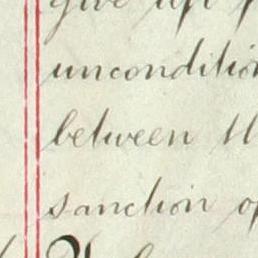 give up
unconditio
between th
sanction of